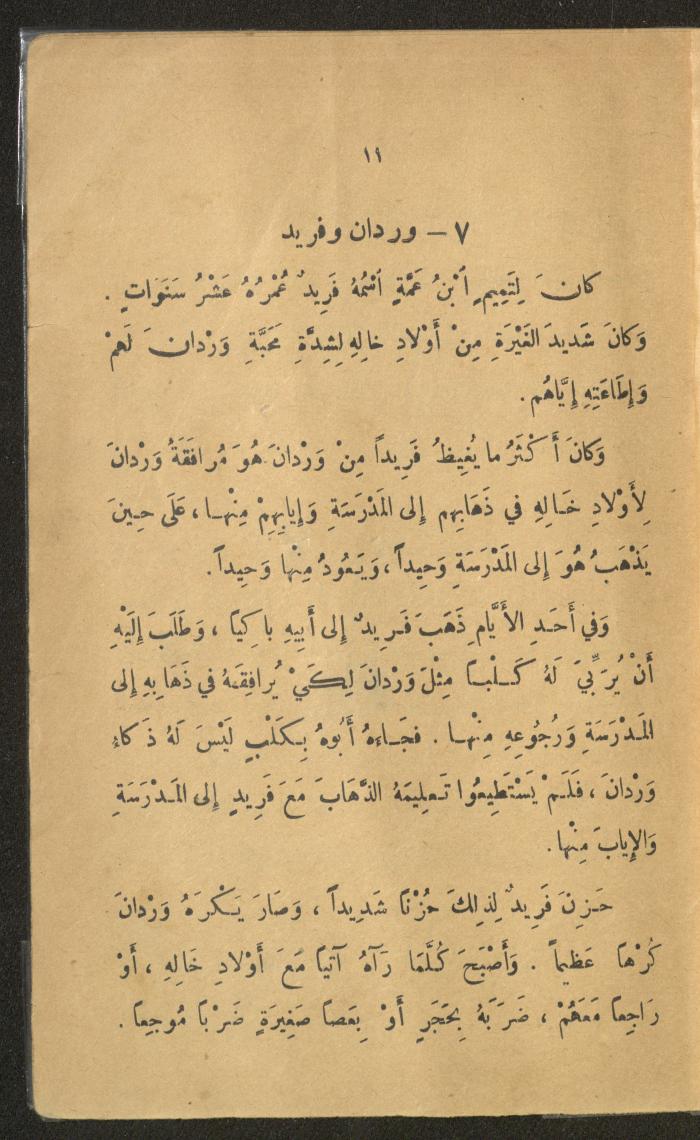 ١١
٧ – وردان وفريد
كانَ لِتَمِيمٍ ٱبْنُ عَمَّةٍ ٱسْمُهُ فَرِيدٌ عُمْرُهُ عَشْرُ سَنَوَاتٍ .
وَكانَ شَدِيدَ الغَيْرَةِ مِنْ أَوْلادِ خالِهِ لِشِدَّةِ مَحَبَّةِ وَرْدانَ لَهُمْ
وَإِطَاعَتِهِ إِيَّاهُم .
وَكانَ أَكْثَرُ ما يُغِيظُ فَرِيداً مِنْ وَرْدانَ هُوَ مُرافَقَةُ وَرْدانَ
لِأَوْلادِ خَالِهِ في ذَهَابِهِم إلى المَدْرَسَةِ وَإِيابِهِمْ مِنْها ، عَلَى حِينَ
يَذْهَبُ هُوَ إلى المَدْرَسَةِ وَحِيداً ، وَيَعُودُ مِنْها وَحِيداً .
وَفي أَحَدِ الأَيَّامِ ذَهَبَ فَرِيدٌ إلى أَبِيهِ باكِيًا ، وَطَلَبَ إِلَيْهِ
أَنْ يُرَبِّيَ لَهُ كَلْبًا مِثْلَ وَرْدانَ لِكَيْ يُرافِقَهُ في ذَهَابِهِ إلى
المَدْرَسَةِ وَرُجُوعِهِ مِنْها . فَجَاءهُ أَبُوهُ بِكَلْبٍ لَيْسَ لَهُ ذَكاءُ
وَرْدانَ ، فَلَمْ يَسْتَطِيعُوا تَعلِيمَهُ الذَّهَابَ مَعَ فَرِيدٍ إلى المَدْرَسَةِ
وَالإِيابَ مِنْها .
حَزِنَ فَرِيدٌ لِذلِكَ حُزْنًا شَدِيداً ، وَصَارَ يَكْرَهُ وَرْدانَ
كُرْهًا عَظِيماً . وَأَصْبَحَ كُلَّمَا رَآهُ آتياً مَعَ أَوْلادِ خَالِهِ ، أَوْ
رَاجِعاً مَعَهُمْ ، ضَرَبَهُ بِحَجَرٍ أَوْ بِعَصاً صَغِيرَةٍ ضَرْباً مُوجِعاً .